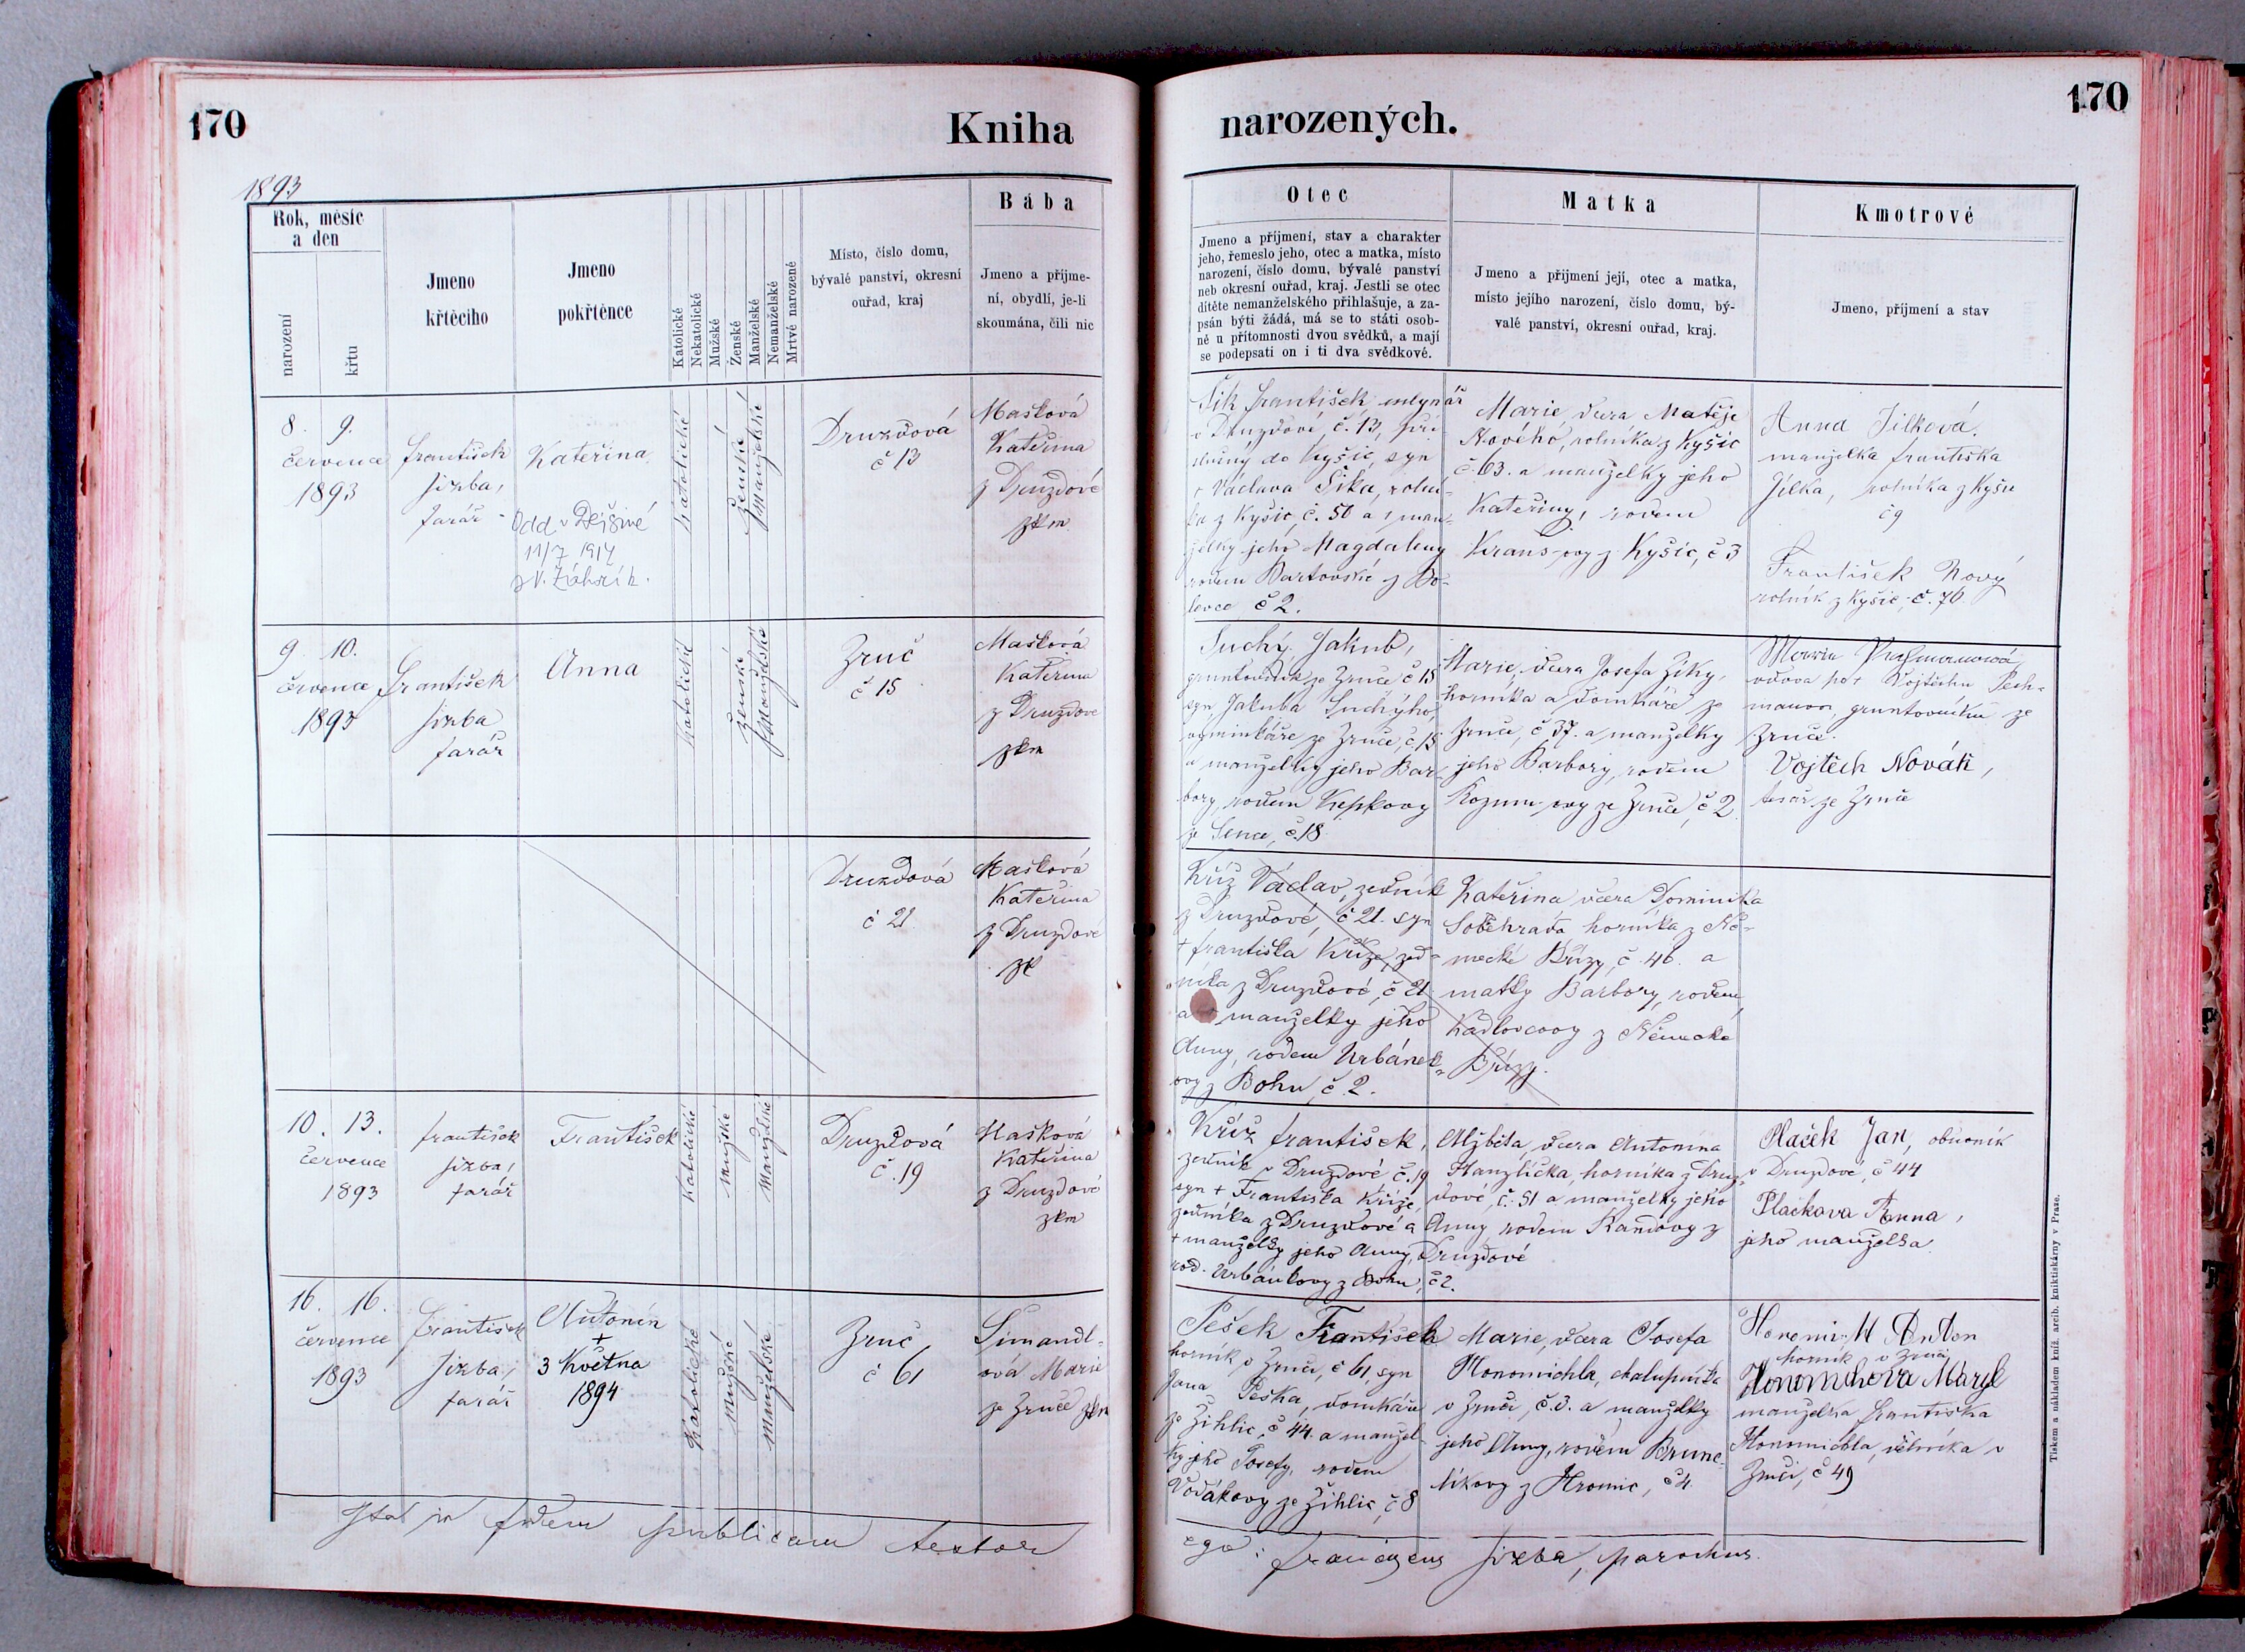 170
Kniha
narozených.
170
1893
Rok, měsíc
a den
narození
křtu
Jmeno
křtěcího
Jmeno
pokřtěnce
Katolické
Nekatolické
Mužské
Ženské
Manželské
Nemanželské
Mrtvě narozené
Místo, číslo domu,
bývalé panství, okresní
ouřad, kraj
Bába
Jmeno a příjme-
ní, obydlí, je-li
skoumána, čili nic
Otec
Jmeno a příjmení, stav a charakter
jeho, řemeslo jeho, otec a matka, místo
narození, číslo domu, bývalé panství
neb okresní ouřad, kraj. Jestli se otec
dítěte nemanželského přihlašuje, a za-
psán býti žádá, má se to státi osob-
ně u přítomnosti dvou svědků, a mají
se podepsati on i ti dva svědkové.
Matka
Jmeno a příjmení její, otec a matka,
místo jejího narození, číslo domu, bý-
valé panství, okresní ouřad, kraj.
Kmotrové
Jmeno, příjmení a stav
8. 9.
července
1893
František
Jizba,
farář
Kateřina
Odd. v Dejšině
11/7 1914
katolické
ženské
manželské
Druzdová
č 13
Mašková
Kateřina
z Druzdové
zkm
Šik František mlynář
v Druzdové č. 13, pří
slušný do Kyšic, syn
† Václava Šika, rolní-
ka z Kyšic, č. 50 a man-
želky jeho Magdaleny
rodem Bartovské z Bo-
levce č 2.
Marie dcera Matěje
Nového, rolníka z Kyšic
č. 63. a manželky jeho
Kateřiny, rodem
Kraus-ovy z Kyšic, č 3
Anna Jílková.
manželka Františka
Jílka, rolníka z Kyšic
č 9
František Nový
rolník z Kyšic, č. 76
9. 10.
července
1893
František
Jizba
farář
Anna
katolické
ženské
manželské
Zruč
č 15
Mašková
Kateřina
z Druzdové
zkm
Suchý Jakub,
gruntovník ze Zruče č 15
syn Jakuba Suchýho,
výminkáře ze Zruče, č. 15
a manželky jeho Bar-
bory, rodem Kepkovy
ze Sence, č. 18
Marie, dcera Josefa Zíky,
horníka a domkáře ze
Zruče, č 37. a manželky
jeho Barbory, rodem
ze Zruče, č 2
vdova po † Vojtěchu Pech-
manovi, gruntovníku ze
Zruče.
Vojtěch Novák,
tesař ze Zruče
Druzdová
č 21
Mašková
Kateřina
z Druzdové
zk
Kříž Václav, zedník
z Druzdové, č 21. syn
† Františka Kříže, zed-
níka z Druzdové, č 21
a manželky jeho
Anny, rodem Urbánek-
ovy z Bohu, č 2.
Kateřina dcera Dominika
Soběhrada horníka z Ně-
mecké Břízy, č. 46. a
matky Barbory, rodem
Kadlecovy z Německé
Břízy.
10. 13.
července
1893
František
Jizba,
farář
František
katolické
mužské
manželské
Druzdová
č. 19
Mašková
Kateřina
z Druzdové
zkm
Kříž František,
zedník v Druzdové č. 19
syn † Františka Kříže,
zedníka z Druzdové a
† manželky jeho Anny,
rod. Urbánkovy z Bohu, č 2.
Alžběta, dcera Antonína
Hanzlíčka, horníka z Druz-
dové, č. 51 a manželky jeho
Anny, rodem Kandovy z
Druzdové
Plaček Jan, obuvník
v Druzdové, č 44
Plačkova Anna,
jeho manželka.
16. 16.
července
1893
František
Jizba,
farář
Antonín
+
3 Května
1894
katolické
mužské
manželské
Zruč
č 61
Šimandl-
ová Marie
ze Zruče zkm
Pešek František
horník v Zruči, č 61, syn
Jana Peška, domkáře
ze Žihlic, č 44 a manžel-
ky jeho Josefy, rodem
Vodákovy ze Žihlic, č 8
Marie, dcera Josefa
Honomichla, chalupníka
v Zruči, č. 3. a manželky
jeho Anny, rodem Brune-
líkovy z Hromic, č 4
Anton
horník v Zruči
manželka Františka
Honomichla, dělníka v
Zruči, č 49
Ita in fidem publicam testor
ego: Franciscus Jizba, parochus.
Tiskem a nákladem kníž. arcib. knihtiskárny v Praze.